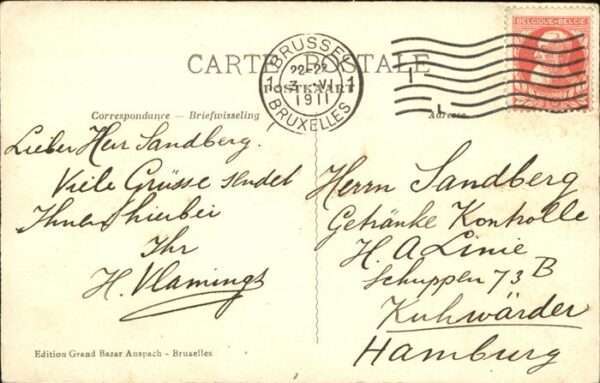 BELGIQUE-BELGIË
CARTE POSTALE
POSTKAART
BRUSSEL
22-22
1 3 -VI 1
1911
BRUXELLES
Correspondance — Briefwisseling
Adresse
Lieber Herr Sandberg.
Viele Grüsse sendet
Ihnen hierbei
Ihr
H. Vlamingh
Herrn Sandberg
Getränke Kontrolle
H. A Linie
Schuppen 73 B
Kuhwärder
Hamburg
Edition Grand Bazar Anspach - Bruxelles